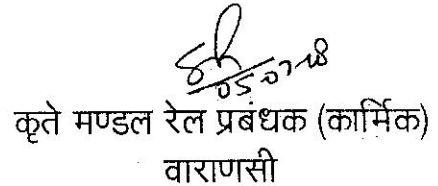 05-07-18
कृते मण्डल रेल प्रबंधक (कार्मिक)
वाराणसी